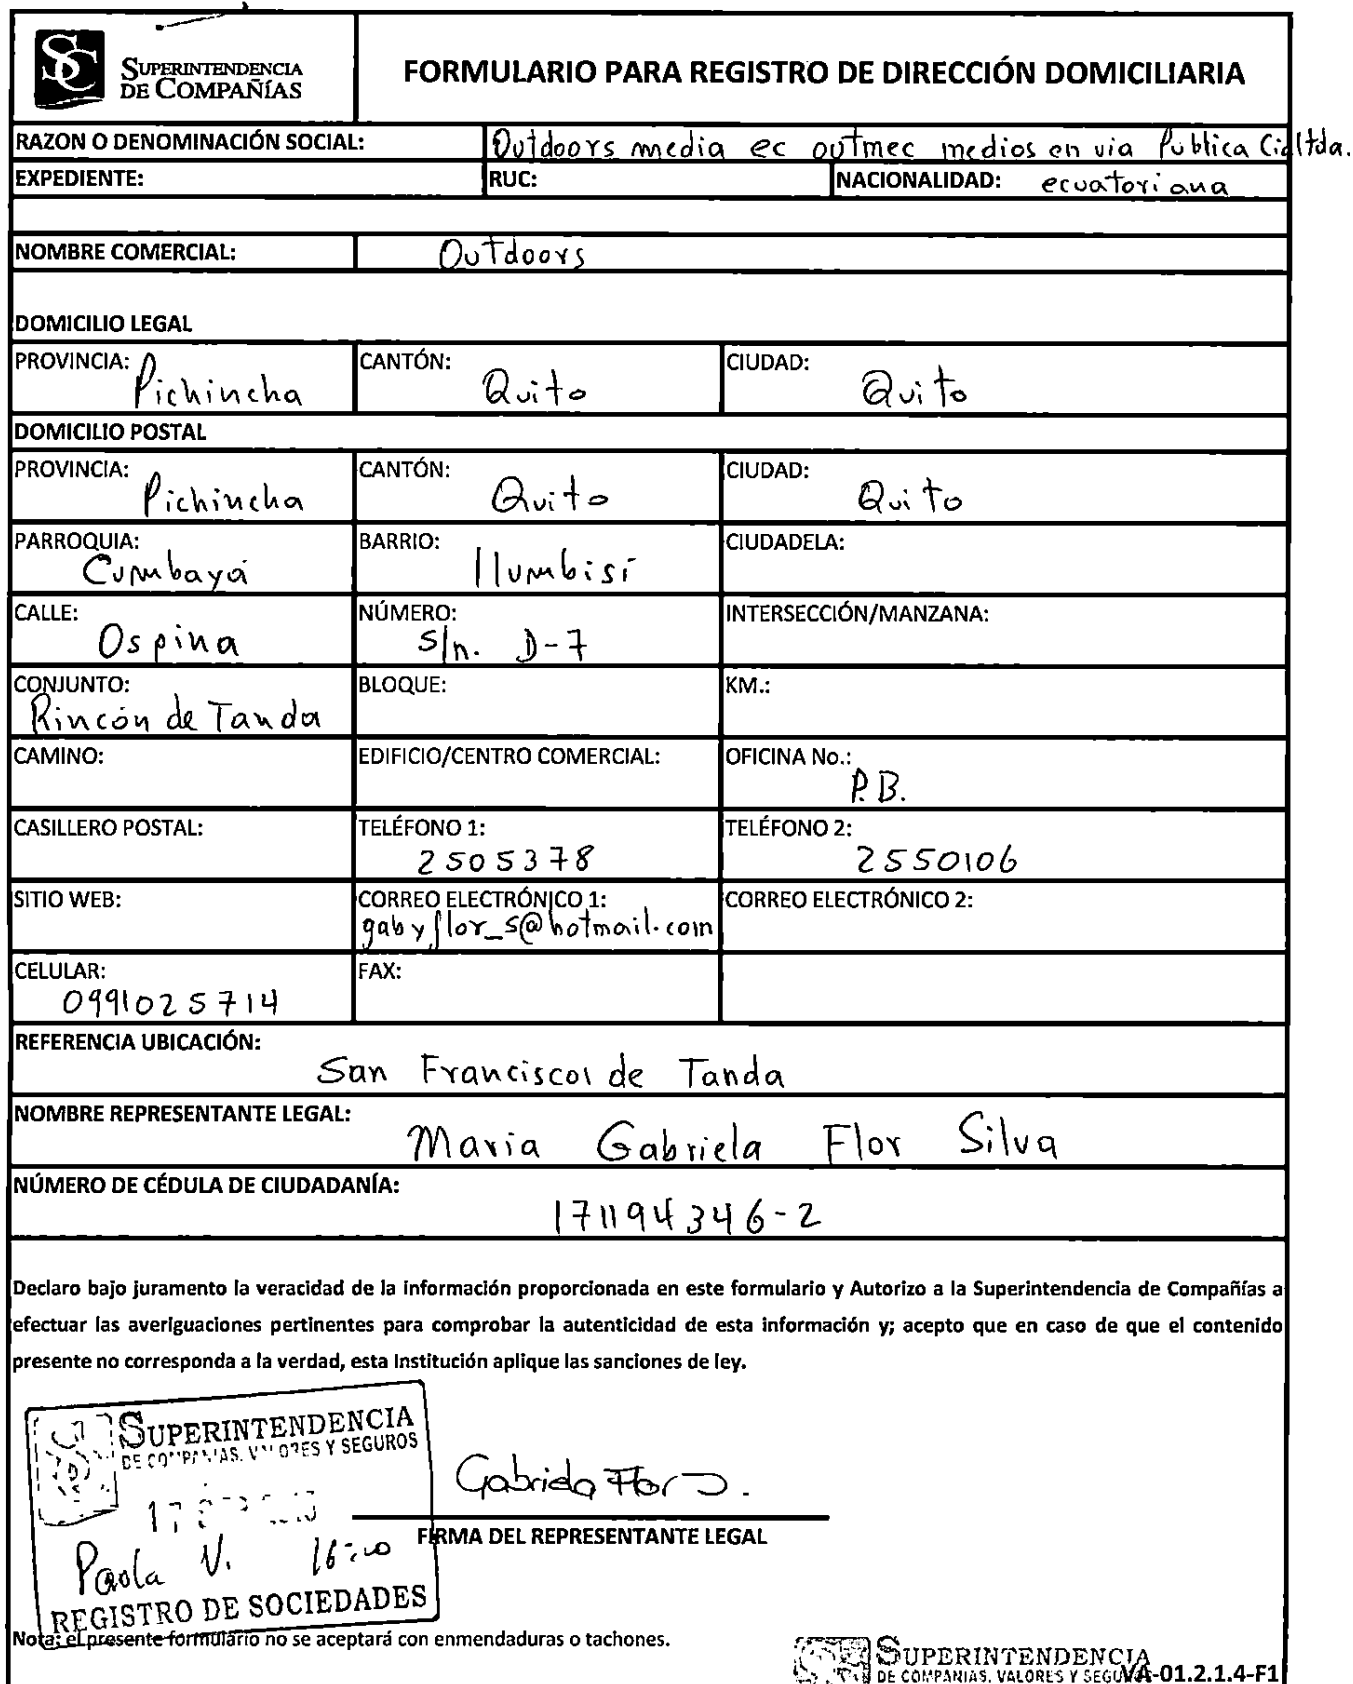 SUPERINTENDENCIA
DE COMPAÑÍAS
FORMULARIO PARA REGISTRO DE DIRECCIÓN DOMICILIARIA
RAZON O DENOMINACIÓN SOCIAL: Outdoors media ec outmec medios en via Publica Cia ltda.
EXPEDIENTE: RUC: NACIONALIDAD: ecuatoriana
NOMBRE COMERCIAL: Outdoors
DOMICILIO LEGAL
PROVINCIA: Pichincha CANTÓN: Quito CIUDAD: Quito
DOMICILIO POSTAL
PROVINCIA: Pichincha CANTÓN: Quito CIUDAD: Quito
PARROQUIA: Cumbayá BARRIO: Ilumbisí CIUDADELA:
CALLE: Ospina NÚMERO: S/n. D-7 INTERSECCIÓN/MANZANA:
CONJUNTO: Rincón de Tanda BLOQUE: KM.:
CAMINO: EDIFICIO/CENTRO COMERCIAL: OFICINA No.: P.B.
CASILLERO POSTAL: TELÉFONO 1: 2505378 TELÉFONO 2: 2550106
SITIO WEB: CORREO ELECTRÓNICO 1: gabyflor_s@hotmail.com CORREO ELECTRÓNICO 2:
CELULAR: 0991025714 FAX:
REFERENCIA UBICACIÓN: San Francisco de Tanda
NOMBRE REPRESENTANTE LEGAL: Maria Gabriela Flor Silva
NÚMERO DE CÉDULA DE CIUDADANÍA: 171194346-2
Declaro bajo juramento la veracidad de la información proporcionada en este formulario y Autorizo a la Superintendencia de Compañías a
efectuar las averiguaciones pertinentes para comprobar la autenticidad de esta información y; acepto que en caso de que el contenido
presente no corresponda a la verdad, esta Institución aplique las sanciones de ley.
SUPERINTENDENCIA
DE COMPAÑIAS, VALORES Y SEGUROS
Gabriela Flor
17
FIRMA DEL REPRESENTANTE LEGAL
Paola V.
REGISTRO DE SOCIEDADES
Nota: el presente formulario no se aceptará con enmendaduras o tachones.
SUPERINTENDENCIA
DE COMPAÑIAS, VALORES Y
VA-01.2.1.4-F1